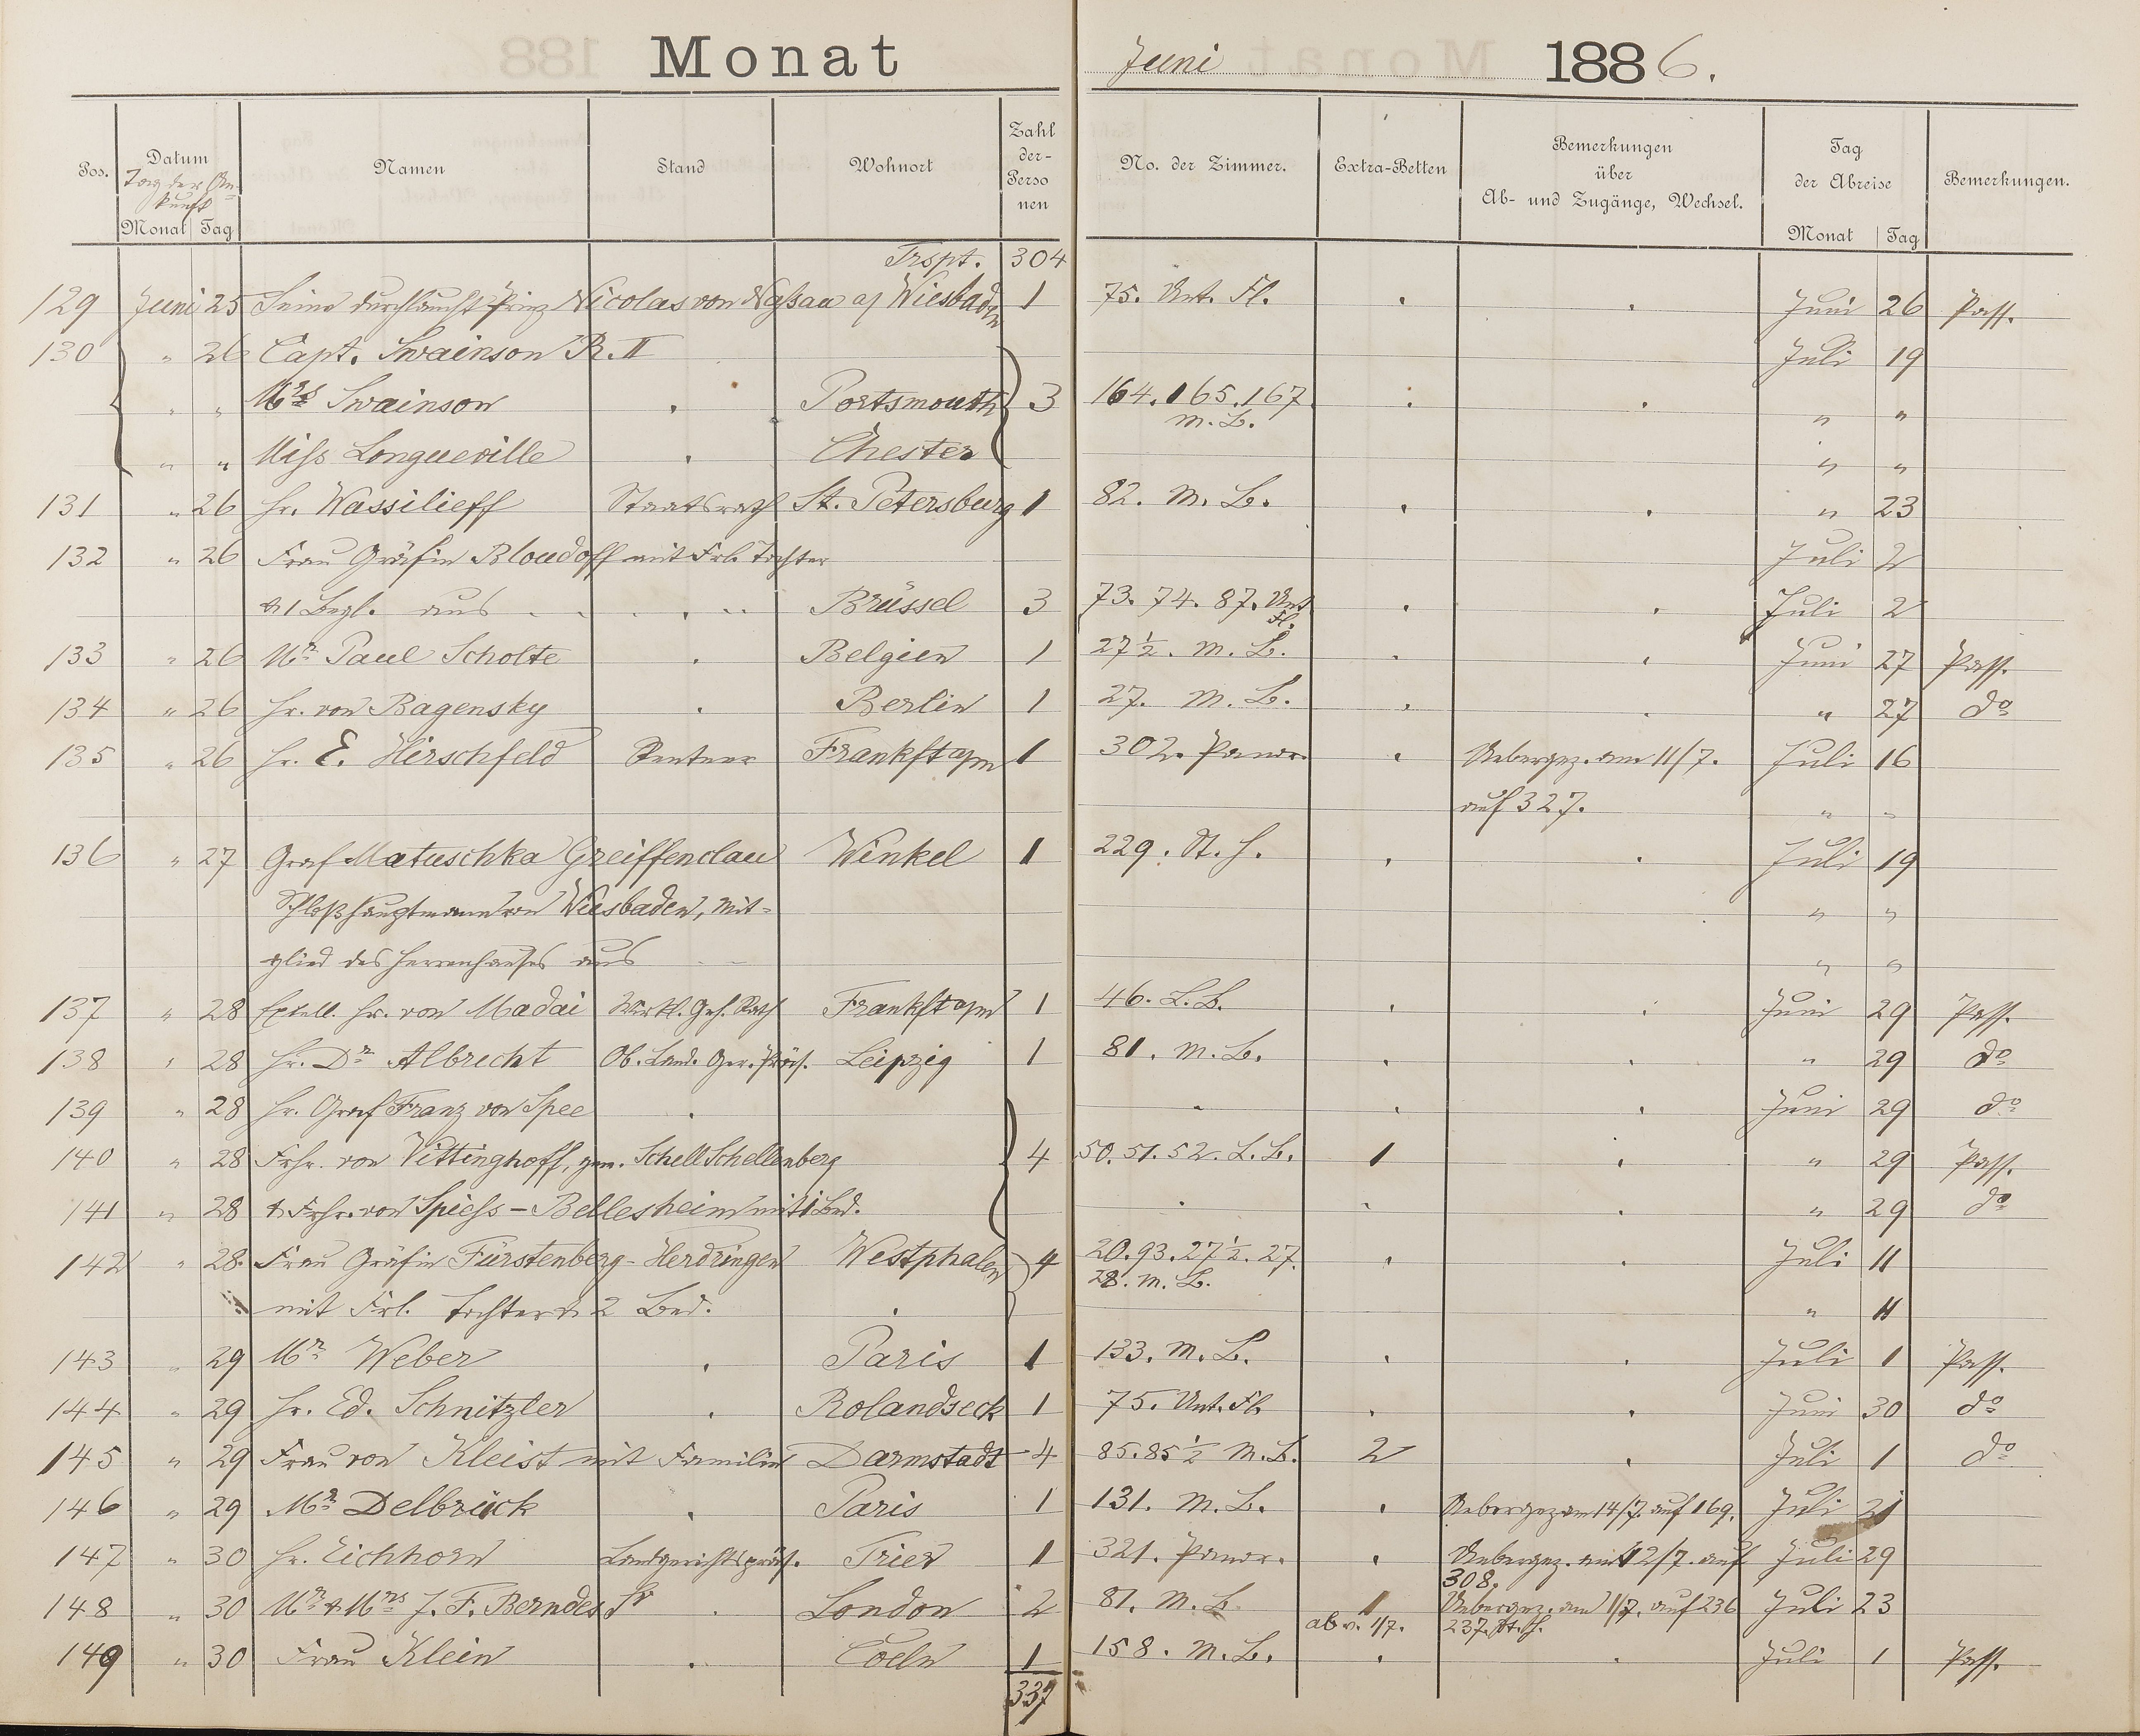 Monat Juni 1886.
Pos. Datum Tag der Ankunft Monat Tag Namen Stand Wohnort Zahl der Personen No. der Zimmer. Extra-Betten Bemerkungen über Ab- und Zugänge, Wechsel. Tag der Abreise Monat Tag Bemerkungen.
Trspt. 304
129 Juni 25 Seine Durchlaucht Prinz Nicolas von Naßau a/ Wiesbaden 1 75. Unt. Fl. Juni 26 Pass.
130 " 26 Capt. Swainson R. II Juli 19
" " Mrs Swainson Portsmouth 3 164. 165. 167. M. B. " "
" " Miss Longueville Chester " "
131 " 26 Hr. Wassilieff Staatsrath St. Petersburg 1 82. M. B. " 23
132 " 26 Frau Gräfin Bloudoff mit Frl. Tochter Juli 2
& 1 Begl. aus Brüssel 3 73. 74. 87. Unt. Fl. Juli 2
133 " 26 Mr Paul Scholte Belgien 1 27 1/2. M. B. Juni 27 Pass.
134 " 26 Hr. von Bagensky Berlin 1 27. M. B. " 27 do
135 " 26 Hr. E. Hirschfeld Rentner Frankft a/m 1 302. Panor. Uebergez. am 11/7. Juli 16
auf 327. " "
136 " 27 Graf Matuschka Greiffenclau Winkel 1 229. St. H. Juli 19
Schloßhauptmann von Wiesbaden, Mit- " "
glied des Herrenhauses aus " "
137 " 28 Excell. Hr. von Madai Wirkl. Geh. Rath Frankft a/m 1 46. L. B. Juni 29 Pass.
138 " 28 Hr. Dr Albrecht Ob. Land. Ger. Präs. Leipzig 1 81. M. B. " 29 do
139 " 28 Hr. Graf Franz von Spee Juni 29 do
140 " 28 Frhr. von Vittinghoff, gen. Schell Schellenberg 4 50. 51. 52. L. B. 1 " 29 Pass.
141 " 28 & Frhr. von Spiess-Bellesheim mit 1 Bed. " 29 do
142 " 28. Frau Gräfin Fürstenberg-Herdringen Westphalen 4 20. 93. 27 1/2. 27. 28. M. B. Juli 11
mit Frl. Tochter & 2 Bed. " 11
143 " 29 Mr Weber Paris 1 133. M. B. Juli 1 Pass.
144 " 29 Hr. Ed. Schnitzler Rolandseck 1 75. Unt. Fl. Juni 30 do
145 " 29 Frau von Kleist mit Familie Darmstadt 4 85. 85 1/2 M. B. 2 Juli 1 do
146 " 29 Mr Delbrück Paris 1 131. M. B. Uebergez am 14/7. auf 169. Juli 21
147 " 30 Hr. Eichhorn Landgerichtspräs. Trier 1 321. Panor. Uebergez. am 12/7. auf 308. Juli 29
148 " 30 Mr & Mrs J. F. Berndes Sr London 2 81. M. B 1 ab v. 1/7. Uebergez. am 1/7. auf 236 237. St. H. Juli 23
149 " 30 Frau Klein Coeln 1 158. M. B. Juli 1 Pass.
337